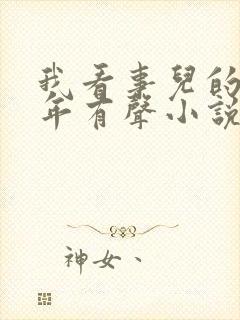 我看事兒的
年有聲小說
神女、